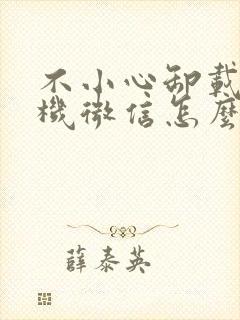 不小心卸載
機微信怎麼
薛泰英